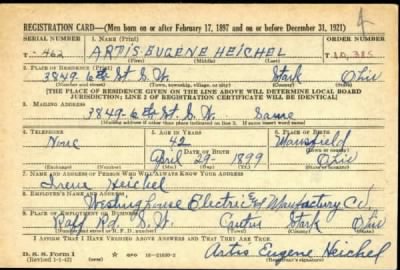 4
REGISTRATION CARD—(Men born on or after February 17, 1897 and on or before December 31, 1921)
SERIAL NUMBER 1. NAME (Print) ORDER NUMBER
T-462 ARTIS EUGENE HEICHEL T10,385
(First) (Middle) (Last)
2. PLACE OF RESIDENCE (Print)
3849-6th St S.W. Stark Ohio
(Number and street) (Town, township, village, or city) (County) (State)
[THE PLACE OF RESIDENCE GIVEN ON THE LINE ABOVE WILL DETERMINE LOCAL BOARD
JURISDICTION; LINE 2 OF REGISTRATION CERTIFICATE WILL BE IDENTICAL]
3. MAILING ADDRESS
3849-6th St. S.W. Same
[Mailing address if other than place indicated on line 2. If same insert word same]
4. TELEPHONE 5. AGE IN YEARS 6. PLACE OF BIRTH
None 42 Mansfield
DATE OF BIRTH (Town or county)
April 29-1899 Ohio
(Exchange) (Number) (Mo.) (Day) (Yr.) (State or country)
7. NAME AND ADDRESS OF PERSON WHO WILL ALWAYS KNOW YOUR ADDRESS
Irene Heichel
8. EMPLOYER'S NAME AND ADDRESS
Westinghouse Electric & Manufactury Co.
9. PLACE OF EMPLOYMENT OR BUSINESS
Raff Rd S.W. Canton Stark Ohio
(Number and street or R. F. D. number) (Town) (County) (State)
I AFFIRM THAT I HAVE VERIFIED ABOVE ANSWERS AND THAT THEY ARE TRUE.
D. S. S. Form 1 GPO 16—21630-2 Artis Eugene Heichel
(Revised 1-1-42) (over) (Registrant's signature)